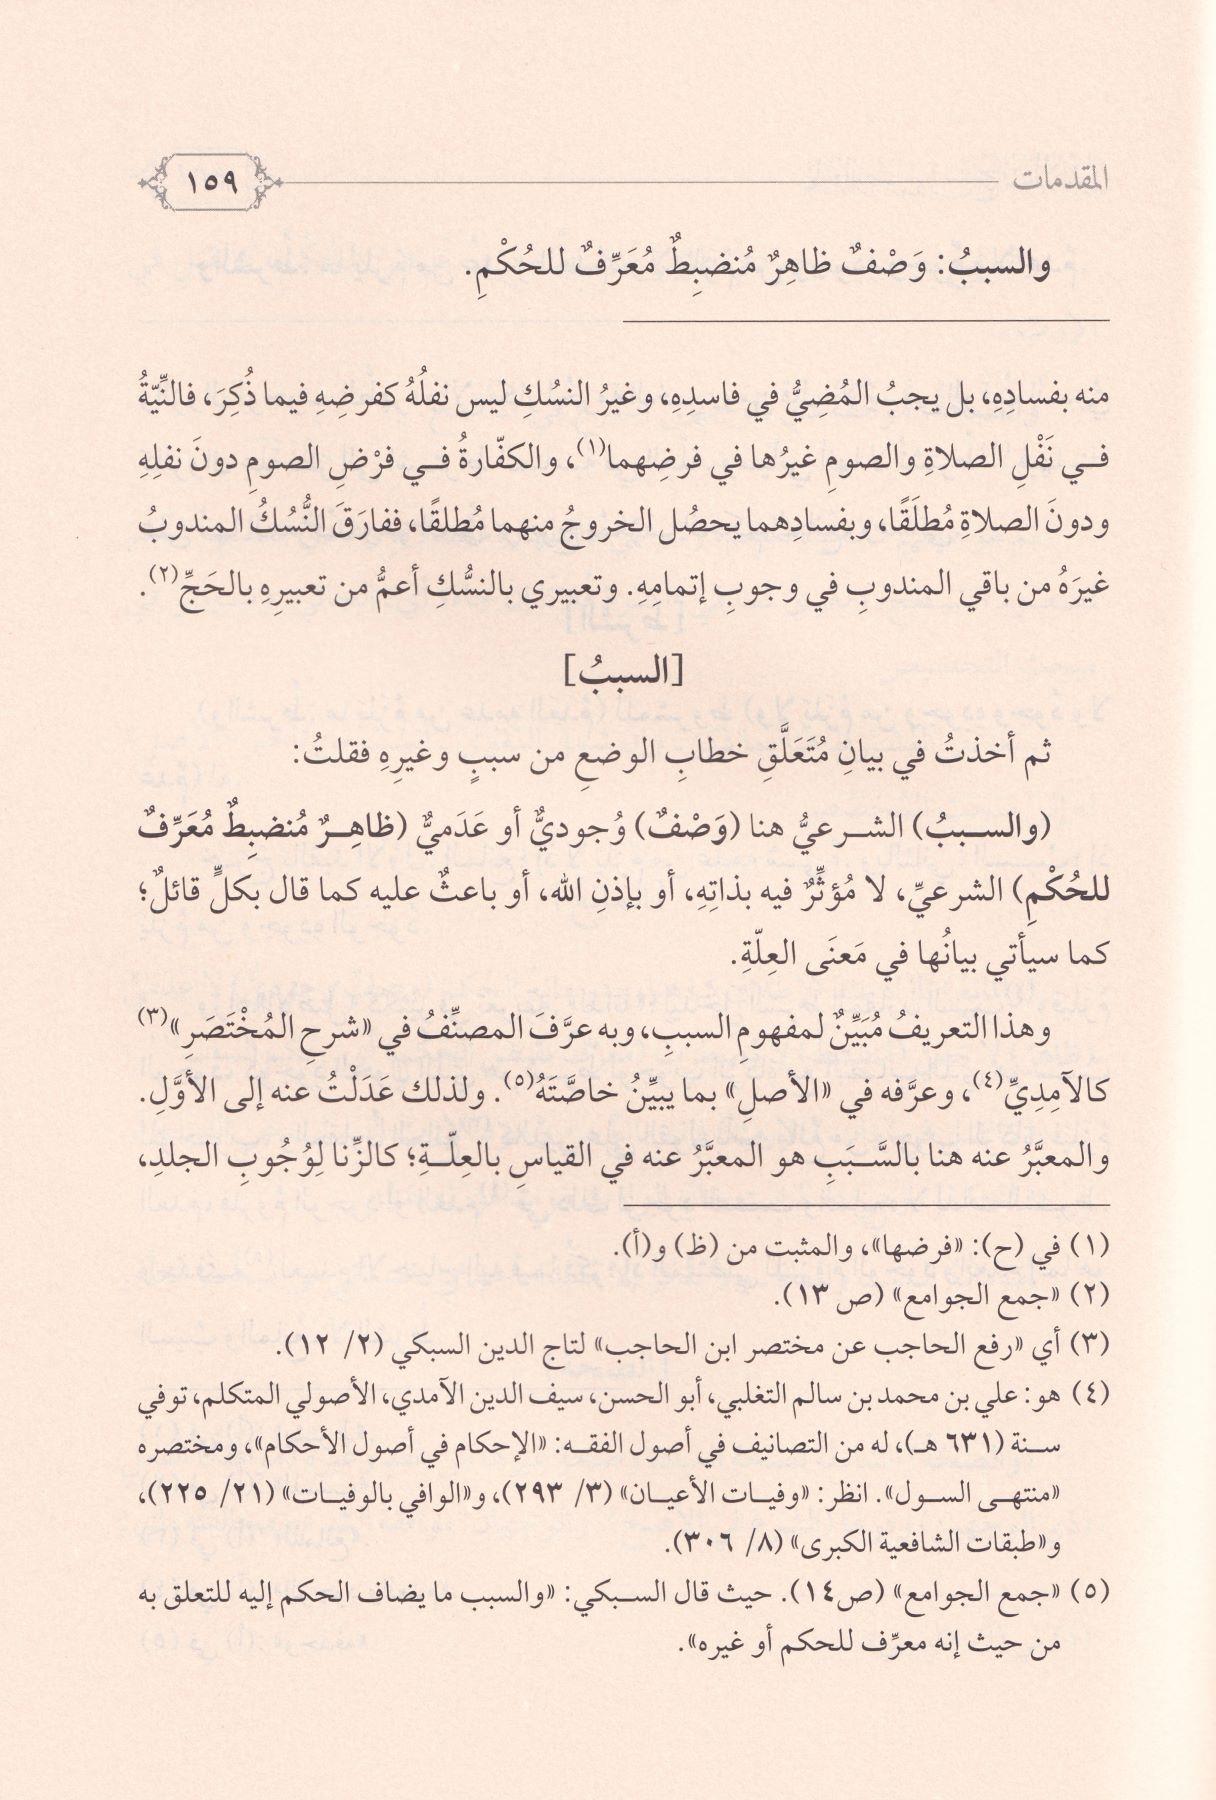 المقدمات ١٥٩
والسببُ: وَصْفٌ ظاهِرٌ مُنضبِطٌ مُعَرِّفٌ للحُكْمِ.
منه بفسادِهِ، بل يجبُ المُضِيُّ في فاسدِهِ، وغيرُ النسُكِ ليس نفلُهُ كفرضِهِ فيما ذُكِرَ، فالنِّيّةُ
في نَفْلِ الصلاةِ والصومِ غيرُها في فرضِهما(١)، والكفّارةُ في فرْضِ الصومِ دونَ نفلِهِ
ودونَ الصلاةِ مُطلَقًا، وبفسادِهما يحصُل الخروجُ منهما مُطلقًا، ففارَقَ النُّسُكُ المندوبُ
غيرَهُ من باقي المندوبِ في وجوبِ إتمامِهِ. وتعبيري بالنسُّكِ أعمُّ من تعبيرِهِ بالحَجِّ(٢).
[السببُ]
ثم أخذتُ في بيانِ مُتَعَلَّقِ خطابِ الوضعِ من سببٍ وغيرِهِ فقلتُ:
(والسببُ) الشرعيُّ هنا (وَصْفٌ) وُجوديٌّ أو عَدَميٌّ (ظاهِرٌ مُنضبِطٌ مُعَرِّفٌ
للحُكْمِ) الشرعيِّ، لا مُؤثِّرٌ فيه بذاتِهِ، أو بإذنِ الله، أو باعثٌ عليه كما قال بكلٍّ قائلٌ؛
كما سيأتي بيانُها في مَعنَى العِلّةِ.
وهذا التعريفُ مُبَيِّنٌ لمفهومِ السببِ، وبه عرَّفَ المصنِّفُ في «شرحِ المُخْتَصَرِ»(٣)
كالآمِدِيِّ(٤)، وعرَّفه في «الأصلِ» بما يبيِّنُ خاصَّتَهُ(٥). ولذلك عَدَلْتُ عنه إلى الأوَّلِ.
والمعبَّرُ عنه هنا بالسَّبَبِ هو المعبَّرُ عنه في القياسِ بالعِلّةِ؛ كالزِّنا لِوُجُوبِ الجلدِ،
(١) في (ح): «فرضها»، والمثبت من (ظ) و(أ).
(٢) «جمع الجوامع» (ص ١٣).
(٣) أي «رفع الحاجب عن مختصر ابن الحاجب» لتاج الدين السبكي (٢/ ١٢).
(٤) هو: علي بن محمد بن سالم التغلبي، أبو الحسن، سيف الدين الآمدي، الأصولي المتكلم، توفي
سنة (٦٣١ هـ)، له من التصانيف في أصول الفقه: «الإحكام في أصول الأحكام»، ومختصره
«منتهى السول». انظر: «وفيات الأعيان» (٣/ ٢٩٣)، و«الوافي بالوفيات» (٢١/ ٢٢٥)،
و«طبقات الشافعية الكبرى» (٨/ ٣٠٦).
(٥) «جمع الجوامع» (ص١٤). حيث قال السبكي: «والسبب ما يضاف الحكم إليه للتعلق به
من حيث إنه معرِّف للحكم أو غيره».